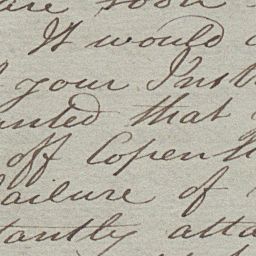 are soon
It would
your Inst
nted that
off Copenh
Failure of
tantly atta